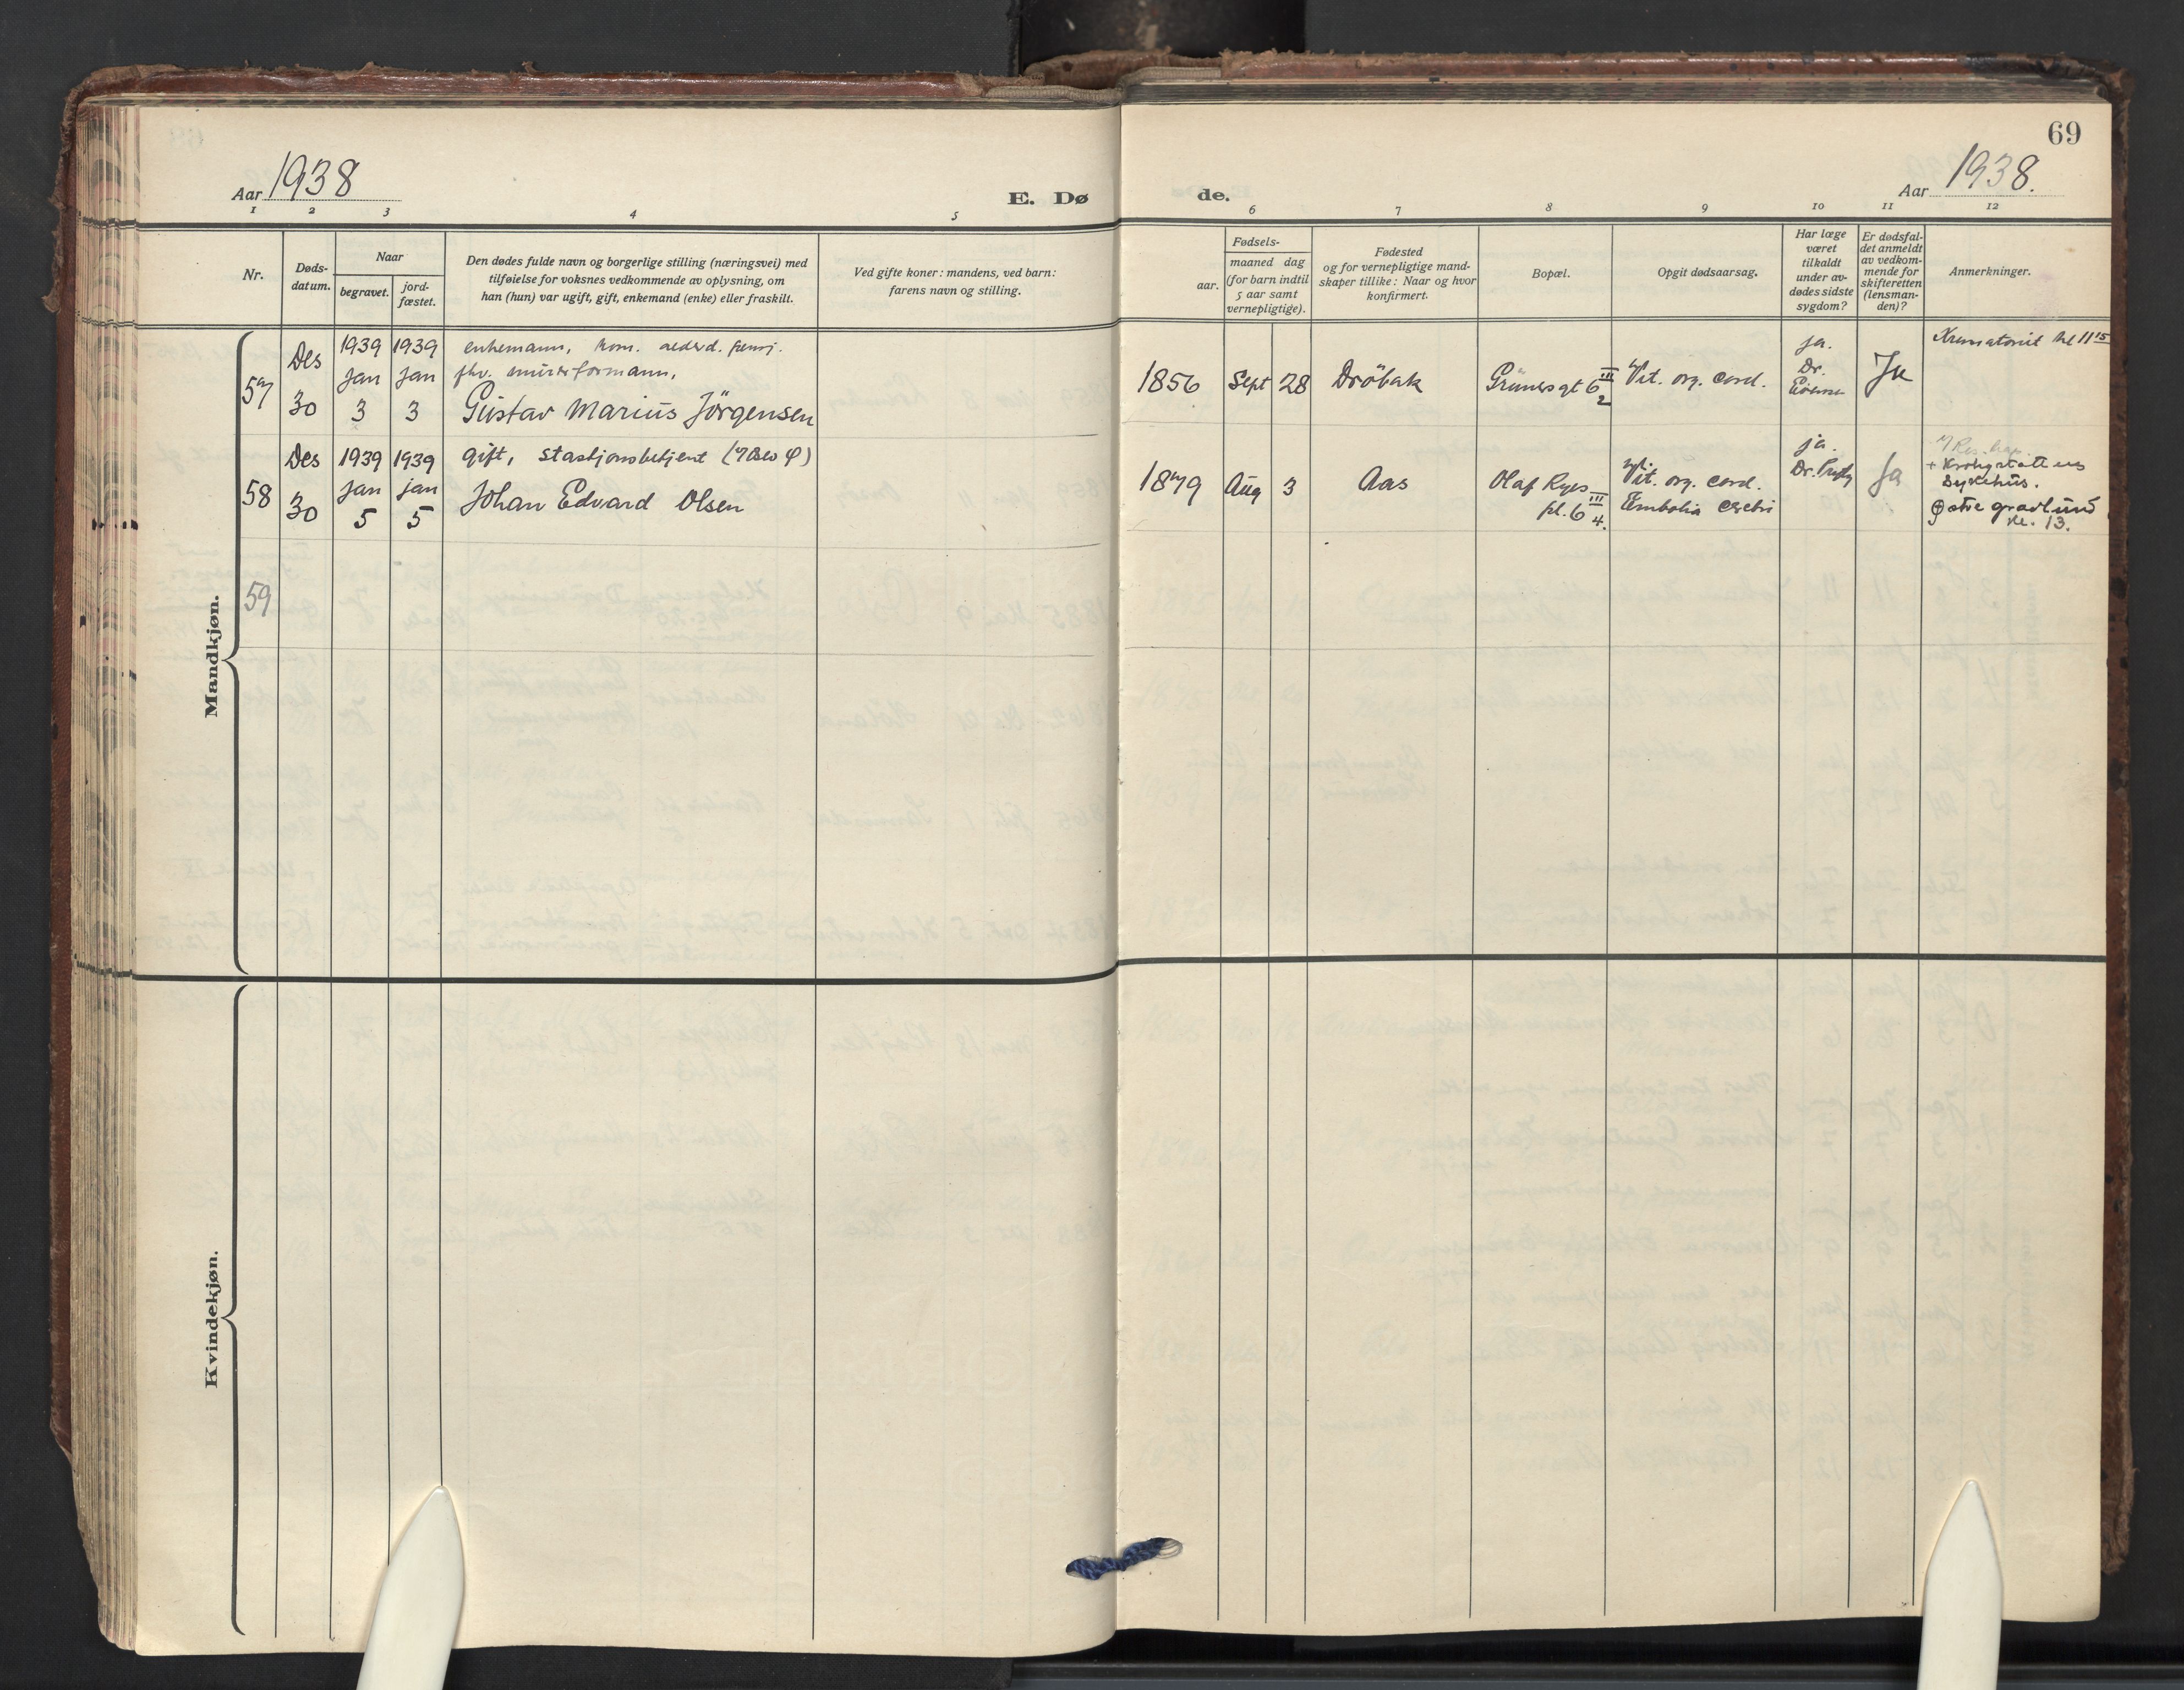 69
Aar 1938
E. Dø
de.
Aar 1938.
1 2 3 4 5
6 7 8 9 10 11 12
Nr.
Døds-
datum.
Naar
begravet.
jord-
fæstet.
Den dødes fulde navn og borgerlige stilling (næringsvei) med
tilføielse for voksnes vedkommende av oplysning, om
han (hun) var ugift, gift, enkemand (enke) eller fraskilt.
Ved gifte koner: mandens, ved barn:
farens navn og stilling.
Fødsels-
aar.
maaned dag
(for barn indtil
5 aar samt
vernepligtige).
Fødested
og for vernepligtige mand-
skaper tillike: Naar og hvor
konfirmert.
Bopæl.
Opgit dødsaarsag.
Har læge
været
tilkaldt
under av-
dødes sidste
sygdom?
Er dødsfal-
det anmeldt
av vedkom-
mende for
skifteretten
(lensman-
den)?
Anmerkninger.
Mandkjøn.
57
Des
30
1939
Jan
3
1939
Jan
3
enkemann, kom. aldersd. pensj.
fhv. murerformann,
Gustav Marius Jörgensen
1856
Sept
28
Dröbak
Grünersgt 6 III
2
Vit. org. cord.
ja.
Dr.
Ja
Krematoriet kl 11 15
58
Des
30
1939
Jan
5
1939
jan
5
gift, stasjonsbetjent
Johan Edvard Olsen
1879
Aug
3
Aas
Olaf Ryes
pl. 6 III
4.
Vit. org. cord.
Embolia cerebri
ja.
Dr.
Ja
+ Krohgstøttens
Sykehus.
Østre gravlund
kl. 13.
59
Kvindekjøn.